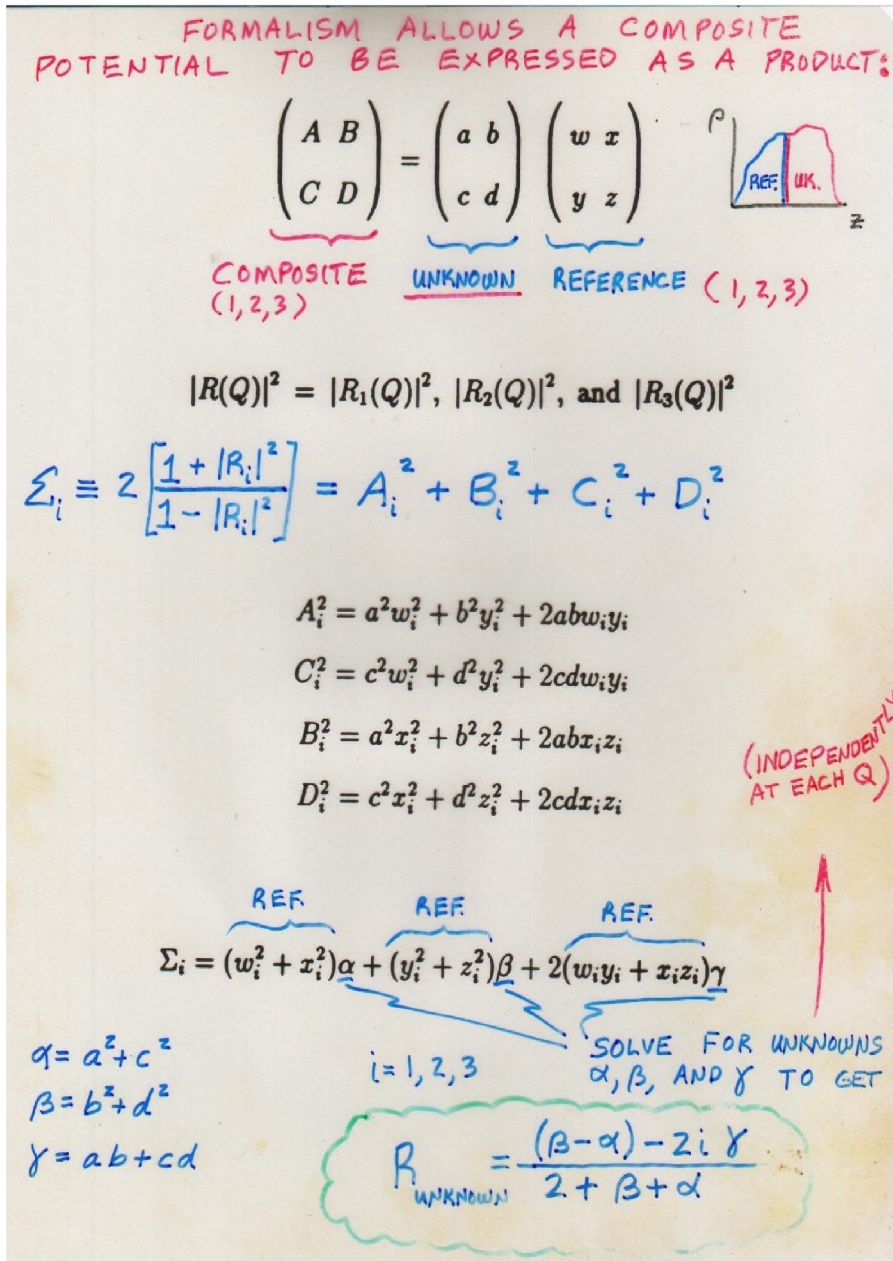 FORMALISM ALLOWS A COMPOSITE
POTENTIAL TO BE EXPRESSED AS A PRODUCT:
( A B ) = ( a b ) ( w x )
( C D ) ( c d ) ( y z )
ρ
REF. UK.
z
COMPOSITE UNKNOWN REFERENCE (1,2,3)
(1,2,3)
|R(Q)|² = |R₁(Q)|², |R₂(Q)|², and |R₃(Q)|²
Σᵢ ≡ 2 [ (1 + |Rᵢ|²) / (1 - |Rᵢ|²) ] = Aᵢ² + Bᵢ² + Cᵢ² + Dᵢ²
Aᵢ² = a²wᵢ² + b²yᵢ² + 2abwᵢyᵢ
Cᵢ² = c²wᵢ² + d²yᵢ² + 2cdwᵢyᵢ
Bᵢ² = a²xᵢ² + b²zᵢ² + 2abxᵢzᵢ
Dᵢ² = c²xᵢ² + d²zᵢ² + 2cdxᵢzᵢ
(INDEPENDENTLY
AT EACH Q)
REF. REF. REF.
Σᵢ = (wᵢ² + xᵢ²)α + (yᵢ² + zᵢ²)β + 2(wᵢyᵢ + xᵢzᵢ)γ
α = a² + c²
β = b² + d²
γ = ab + cd
i = 1, 2, 3
SOLVE FOR UNKNOWNS
α, β, AND γ TO GET
R UNKNOWN = ((β-α) - 2i γ) / (2 + β + α)